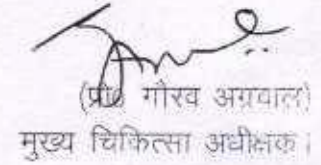 (प्रो० गौरव अग्रवाल)
मुख्य चिकित्सा अधीक्षक।